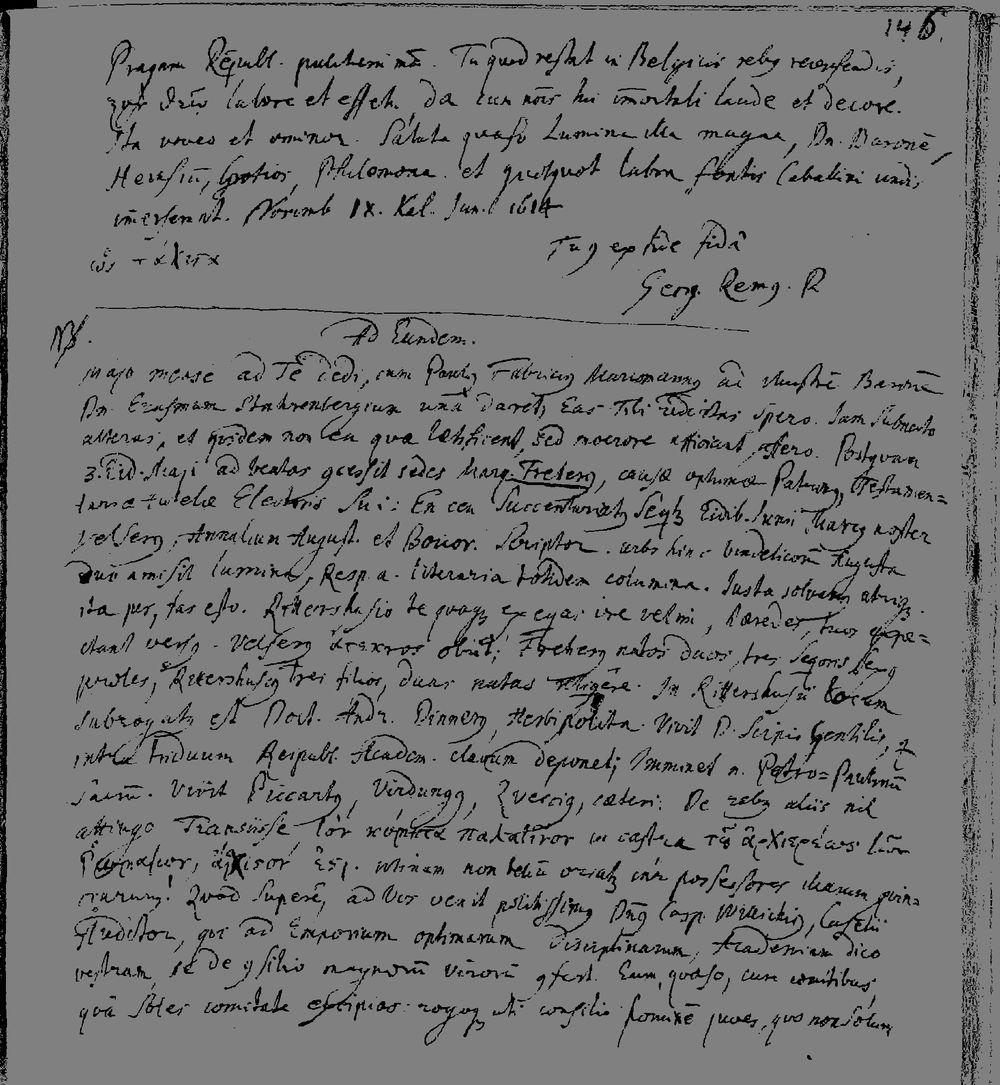 146.
Pragam Republ. Tu quod restat in Belgicis rebus recensendis,
labore et da cum nris hui imortali laude et decore.
Ita voveo et ominor. Saluta quaso Lumina illa magna, Dn. Baronē,
Heinsiū, Grotior, Philomona et quotquot labra fontis Cabalini undis
imerserunt. Norimb IX. Kal. Jun. 1614
Tuus ex fide
ὡς τάχιστα
Georg. Remus. R
NB.
Ad Eundem.
Majo mense ad Te dedi, cum Paulus Fabricius Marcmannus ad illustrē Baronē
Dn. Erasmum Stahrenbergium unā daret; Eas Tibi redditas spero. Iam subnecto
alteras, et quidem non ea quæ lætificent, sed moerore afficiant, affero. Postquam
3. Eid. Maji ad beatas gressit sedes Marq. Freherus, causæ optimæ Patronus, Testamen=
tariæ tutelæ Electoris Sui: En ceu Succenturiatus Eidib. Junii Marcus noster
Velserus, Annalium August. et Boior. Scriptor. urbs hinc Vindelicorū Augusta
duo amisit lumina, Resp. a. literaria totidem columina. Iusta solvamus
ita jus, fas esto. Rittershusio te quoque ire velim, hæredes tuos expe=
ctant versus. Velserus ἄτεκνος obiit; Freherus natos duos, tres
proles, Rittershusius tres filios, duas natas. In Rittershusii locum
subrogatus est Doct. Andr. Dinnerus, Herbipolita. Vivit D. Scipio Gentilis, et
intra triduum Reipubl. Academ. clavum deponet; Imminet n. Petro=Paulinū
sacrū. Vivit Piccartus, Virdungus, Queccius, cæteri. De rebus aliis nil
attingo Transiisse τὸν κόμητα παλατῖνον in castra τοῦ ἀρχιερέως τῶν
Ρωμαίων, ἄχιστον ἐστι. utinam non bellū oriatur inter possessores illarum provin=
ciarum! Quod superē, ad Vos venit politissimus Dnus Casp. Caselii
Auditor, qui ad Emporium optimarum Disciplinarum, Academiam dico
vestram, se de consilio magnorū virorū confert. Eum, quaso, cum comitibus,
quā soles comitate excipias rogoque uti consilio juves, quo non solum